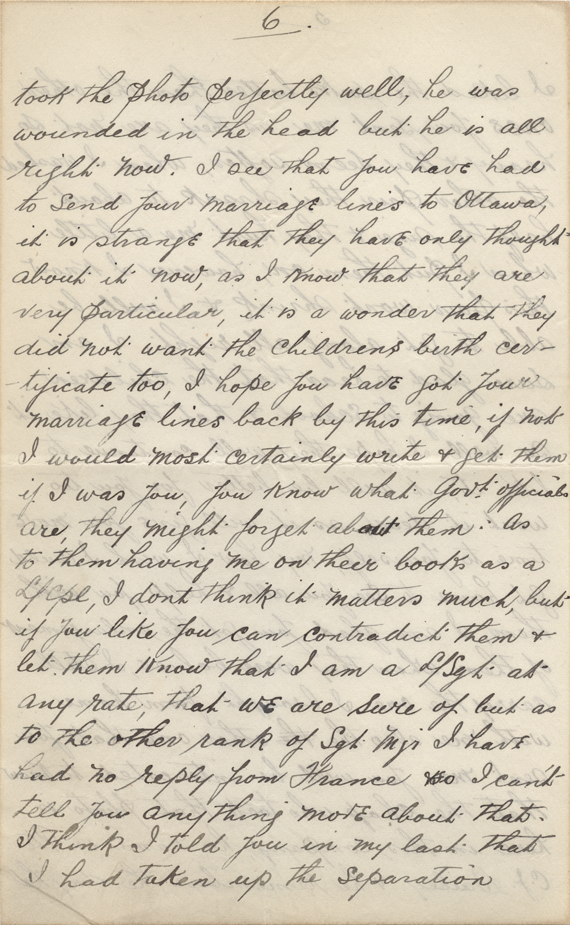 6.
took the photo perfectly well, he was
wounded in the head but he is all
right now. I see that you have had
to send your marriage lines to Ottawa,
it is strange that they have only thought
about it now, as I know that they are
very particular, it is a wonder that they
did not want the childrens birth cer-
-tificate too, I hope you have got your
marriage lines back by this time, if not
I would most certainly write & get them
if I was you, you know what Govt officials
are, they might forget about them. As
to them having me on their books as a
L/Cpl, I dont think it matters much, but
if you like you can contradict them &
let them know that I am a L/Sgt at
any rate, that we are sure of but as
to the other rank of Sgt Mjr I have
had no reply from France so I can't
tell you anything more about that.
I think I told you in my last that
I had taken up the separation